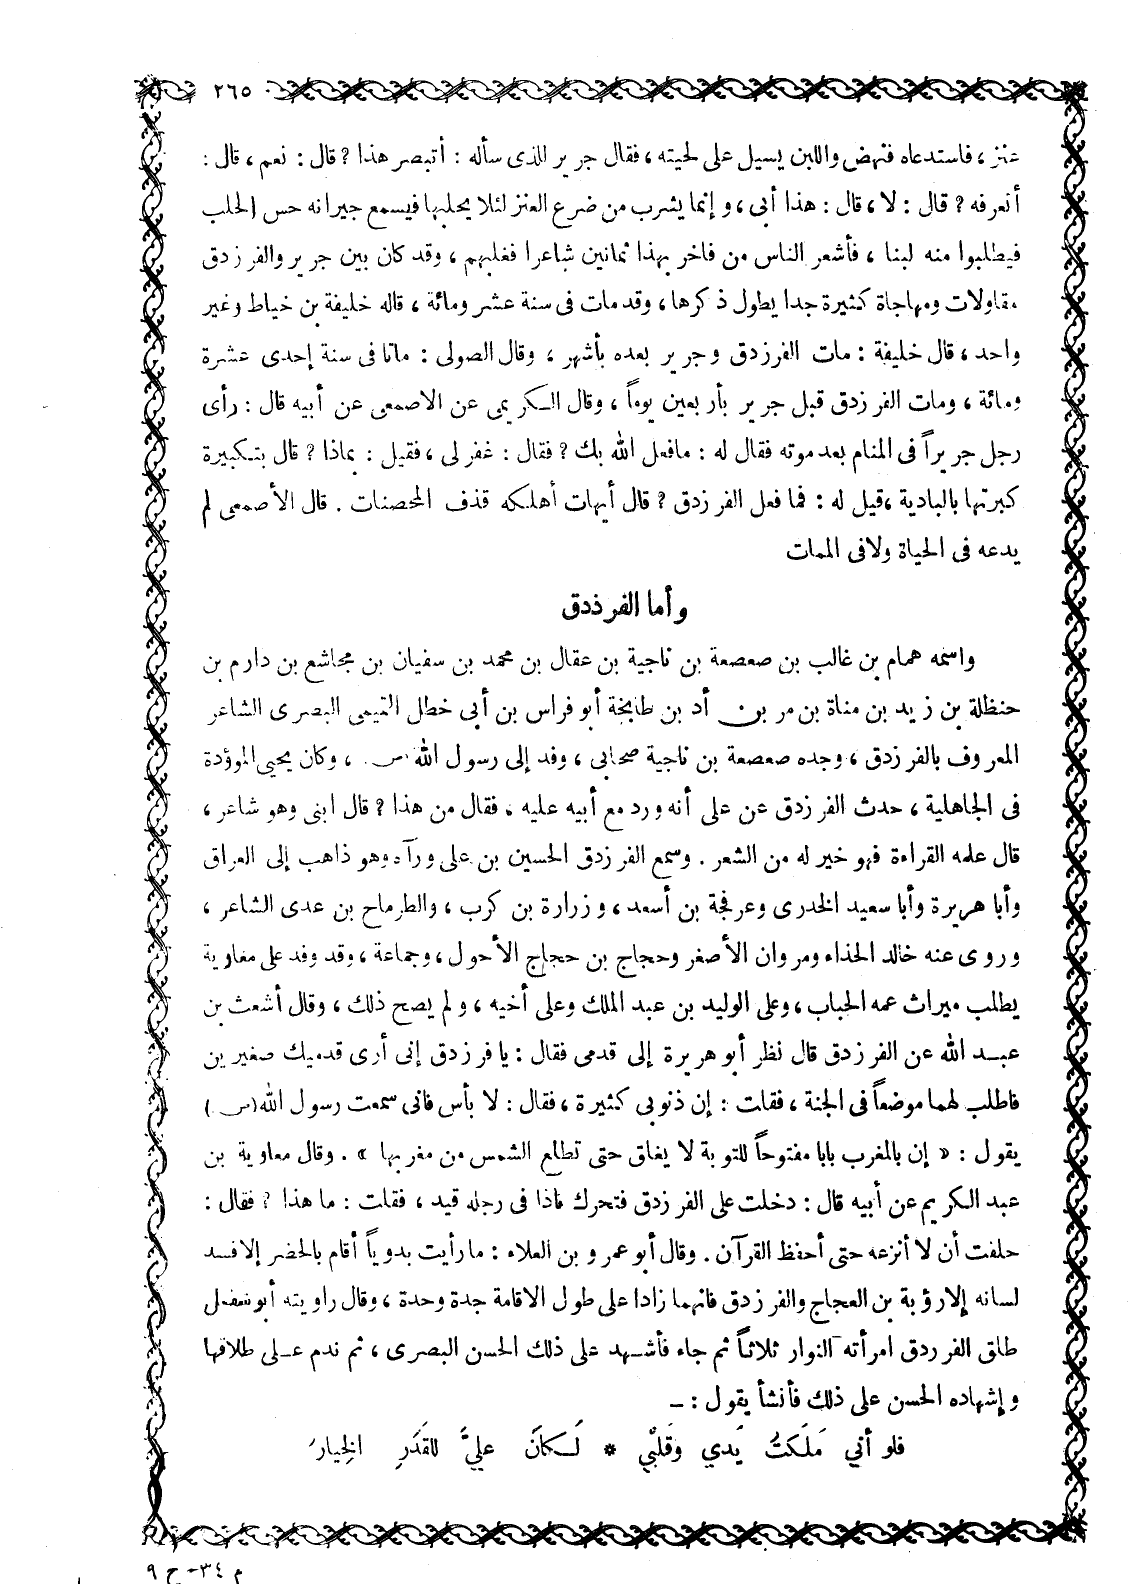 ٢٦٥
عنز ، فاستدعاه فنهض واللبن يسيل على لحيته ، فقال جرير للذى سأله : أتبصر هذا ? قال : نعم ، قال :
أتعرفه ? قال : لا ، قال : هذا أبى ، وإنما يشرب من ضرع العنز لئلا يحلبها فيسمع جيرانه حس الحلب
فيطلبوا منه لبنا ، فأشعر الناس من فاخر بهذا ثمانين شاعرا فغلبهم ، وقد كان بين جرير والفرزدق
مقاولات ومهاجاة كثيرة جدا يطول ذكرها ، وقد مات فى سنة عشر ومائة ، قاله خليفة بن خياط وغير
واحد ، قال خليفة : مات الفرزدق وجرير بعده بأشهر ، وقال الصولى : ماتا فى سنة إحدى عشرة
ومائة ، ومات الفرزدق قبل جرير بأربعين يوماً ، وقال الكريمى عن الاصمعى عن أبيه قال : رأى
رجل جريراً فى المنام بعد موته فقال له : مافعل الله بك ? فقال : غفر لى ، فقيل : بماذا ? قال بتكبيرة
كبرتها بالبادية ، قيل له : فما فعل الفرزدق ? قال أيهات أهلكه قذف المحصنات . قال الأصمعى لم
يدعه فى الحياة ولافى الممات
وأما الفرذدق
واسمه همام بن غالب بن صعصعة بن ناجية بن عقال بن محمد بن سفيان بن مجاشع بن دارم بن
حنظلة بن زيد بن مناة بن مر بن أد بن طابخة أبو فراس بن أبى خطل التميمى البصرى الشاعر
المعروف بالفرزدق ، وجده صعصعة بن ناجية صحابى ، وفد إلى رسول الله س ، وكان يحيى الموؤدة
فى الجاهلية ، حدث الفرزدق عن على أنه ورد مع أبيه عليه ، فقال من هذا ? قال ابنى وهو شاعر ،
قال علمه القراءة فهو خير له من الشعر . وسمع الفرزدق الحسين بن على ورآه وهو ذاهب إلى العراق
وأبا هريرة وأبا سعيد الخدرى وعرفجة بن أسعد ، وزرارة بن كرب ، والطرماح بن عدى الشاعر ،
وروى عنه خالد الحذاء ومروان الأصغر وحجاج بن حجاج الأحول ، وجماعة ، وقد وفد على معاوية
يطلب ميراث عمه الحباب ، وعلى الوليد بن عبد الملك وعلى أخيه ، ولم يصح ذلك ، وقال أشعث بن
عبد الله عن الفرزدق قال نظر أبو هريرة إلى قدمى فقال : يافرزدق إنى أرى قدميك صغيرين
فاطلب لهما موضعاً فى الجنة ، فقلت : إن ذنوبى كثيرة ، فقال : لا بأس فانى سمعت رسول الله (س)
يقول : « إن بالمغرب بابا مفتوحاً للتوبة لا يغلق حتى تطلع الشمس من مغربها » . وقال معاوية بن
عبد الكريم عن أبيه قال : دخلت على الفرزدق فتحرك فاذا فى رجله قيد ، فقلت : ما هذا ? فقال :
حلفت أن لا أنزعه حتى أحفظ القرآن . وقال أبو عمرو بن العلاء : مارأيت بدوياً أقام بالحضر إلافسد
لسانه إلارؤبة بن العجاج والفرزدق فانهما زادا على طول الاقامة جدة وحدة ، وقال راويته أبو شفقل
طلق الفرردق امرأته النوار ثلاثاً ثم جاء فأشهد على ذلك الحسن البصرى ، ثم ندم على طلاقها
وإشهاده الحسن على ذلك فأنشأ يقول : ـ
فلو أني مَلَكتُ يَدي وَقَلبي * لَـكانَ عليَّ للقَدَرِ الخِيارُ
م ٣٤- ج ٩